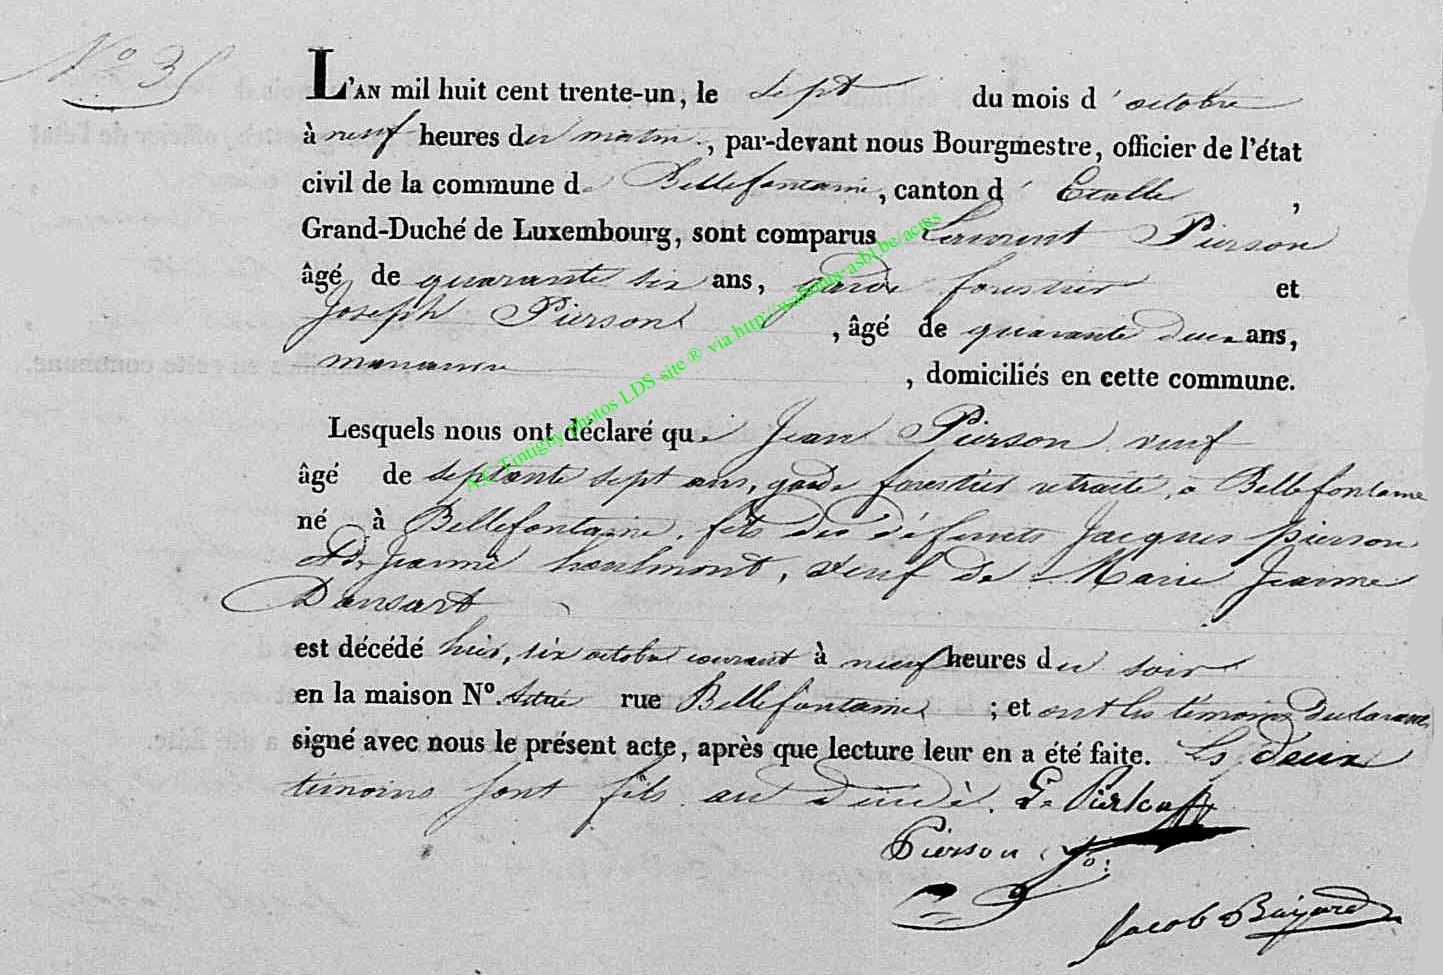 N.º 3
L'AN mil huit cent trente-un, le sept du mois d'octobre
à neuf heures du matin, par-devant nous Bourgmestre, officier de l'état
civil de la commune de Bellefontaine, canton d'Etalle,
Grand-Duché de Luxembourg, sont comparus Laurent Pierson
âgé de quarante six ans, garde forestier et
Joseph Pierson, âgé de quarante deux ans,
manœuvre, domiciliés en cette commune.
Lesquels nous ont déclaré que Jean Pierson veuf
âgé de septante sept ans, garde forestier retraité, à Bellefontaine
né à Bellefontaine, fils des défunts Jacques pierson
et de Jeanne, veuf de Marie Jeanne
Dansart
est décédé hier, six octobre courant à neuf heures du soir
en la maison Nº. située rue Bellefontaine ; et ont les témoins
signé avec nous le présent acte, après que lecture leur en a été faite. Les deux
témoins sont fils au
Pierson
Jacob Bayard
A.C. Tintigny photos LDS site ® via http://wallonia-asbl.be/act88